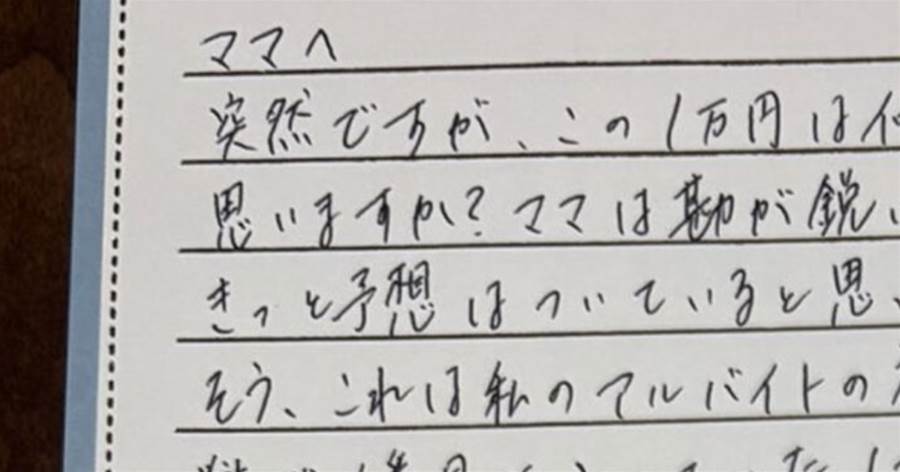 ママへ
突然ですが、この1万円は
思いますか?ママは勘が鋭い
きっと予想はついていると思
そう、これは私のアルバイトの